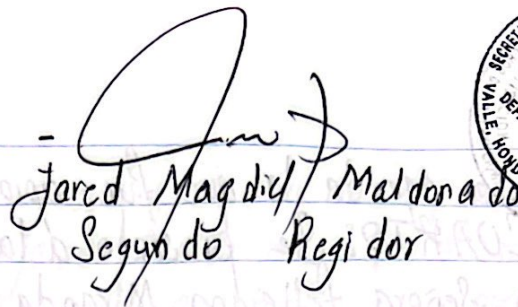 Jared Magdiel Maldonado
Segundo Regidor
SECRET
DE
VALLE, HOND